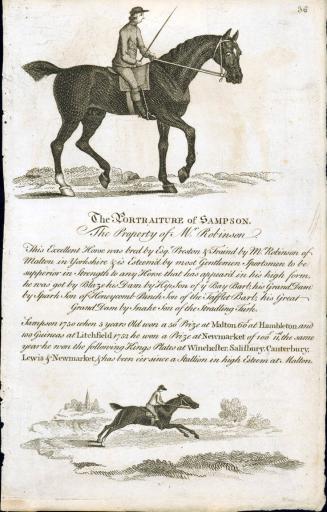 36
The PORTRAITURE of SAMPSON.
The Property of Mr. Robinson
This Excellent Horse was bred by Esqr. Preston & Train'd by Mr. Robinson of
Malton in Yorkshire & is Esteem'd by most Gentlemen Sportsmen to be
supperior in Strength to any Horse that has appear'd in his high form,
he was got by Blaze his Dam by Hip Son of ye Bay Barb; his Grand Dam
by Spark Son of Honeycomb Punch Son of the Tafflet Barb; his Great
Grand Dam by Snake Son of the Stradling Turk.
Sampson 1750 when 5 years Old won a 50£ Prize at Malton 60£ of Hambleton and
100 Guineas at Litchfield 1751 he won a Prize at Newmarket of 100 the same
year he won the following Kings Plates at Winchester, Salisbury, Canterbury,
Lewis & Newmarket, & has been ever since a Stallion in high Esteem at Malton.